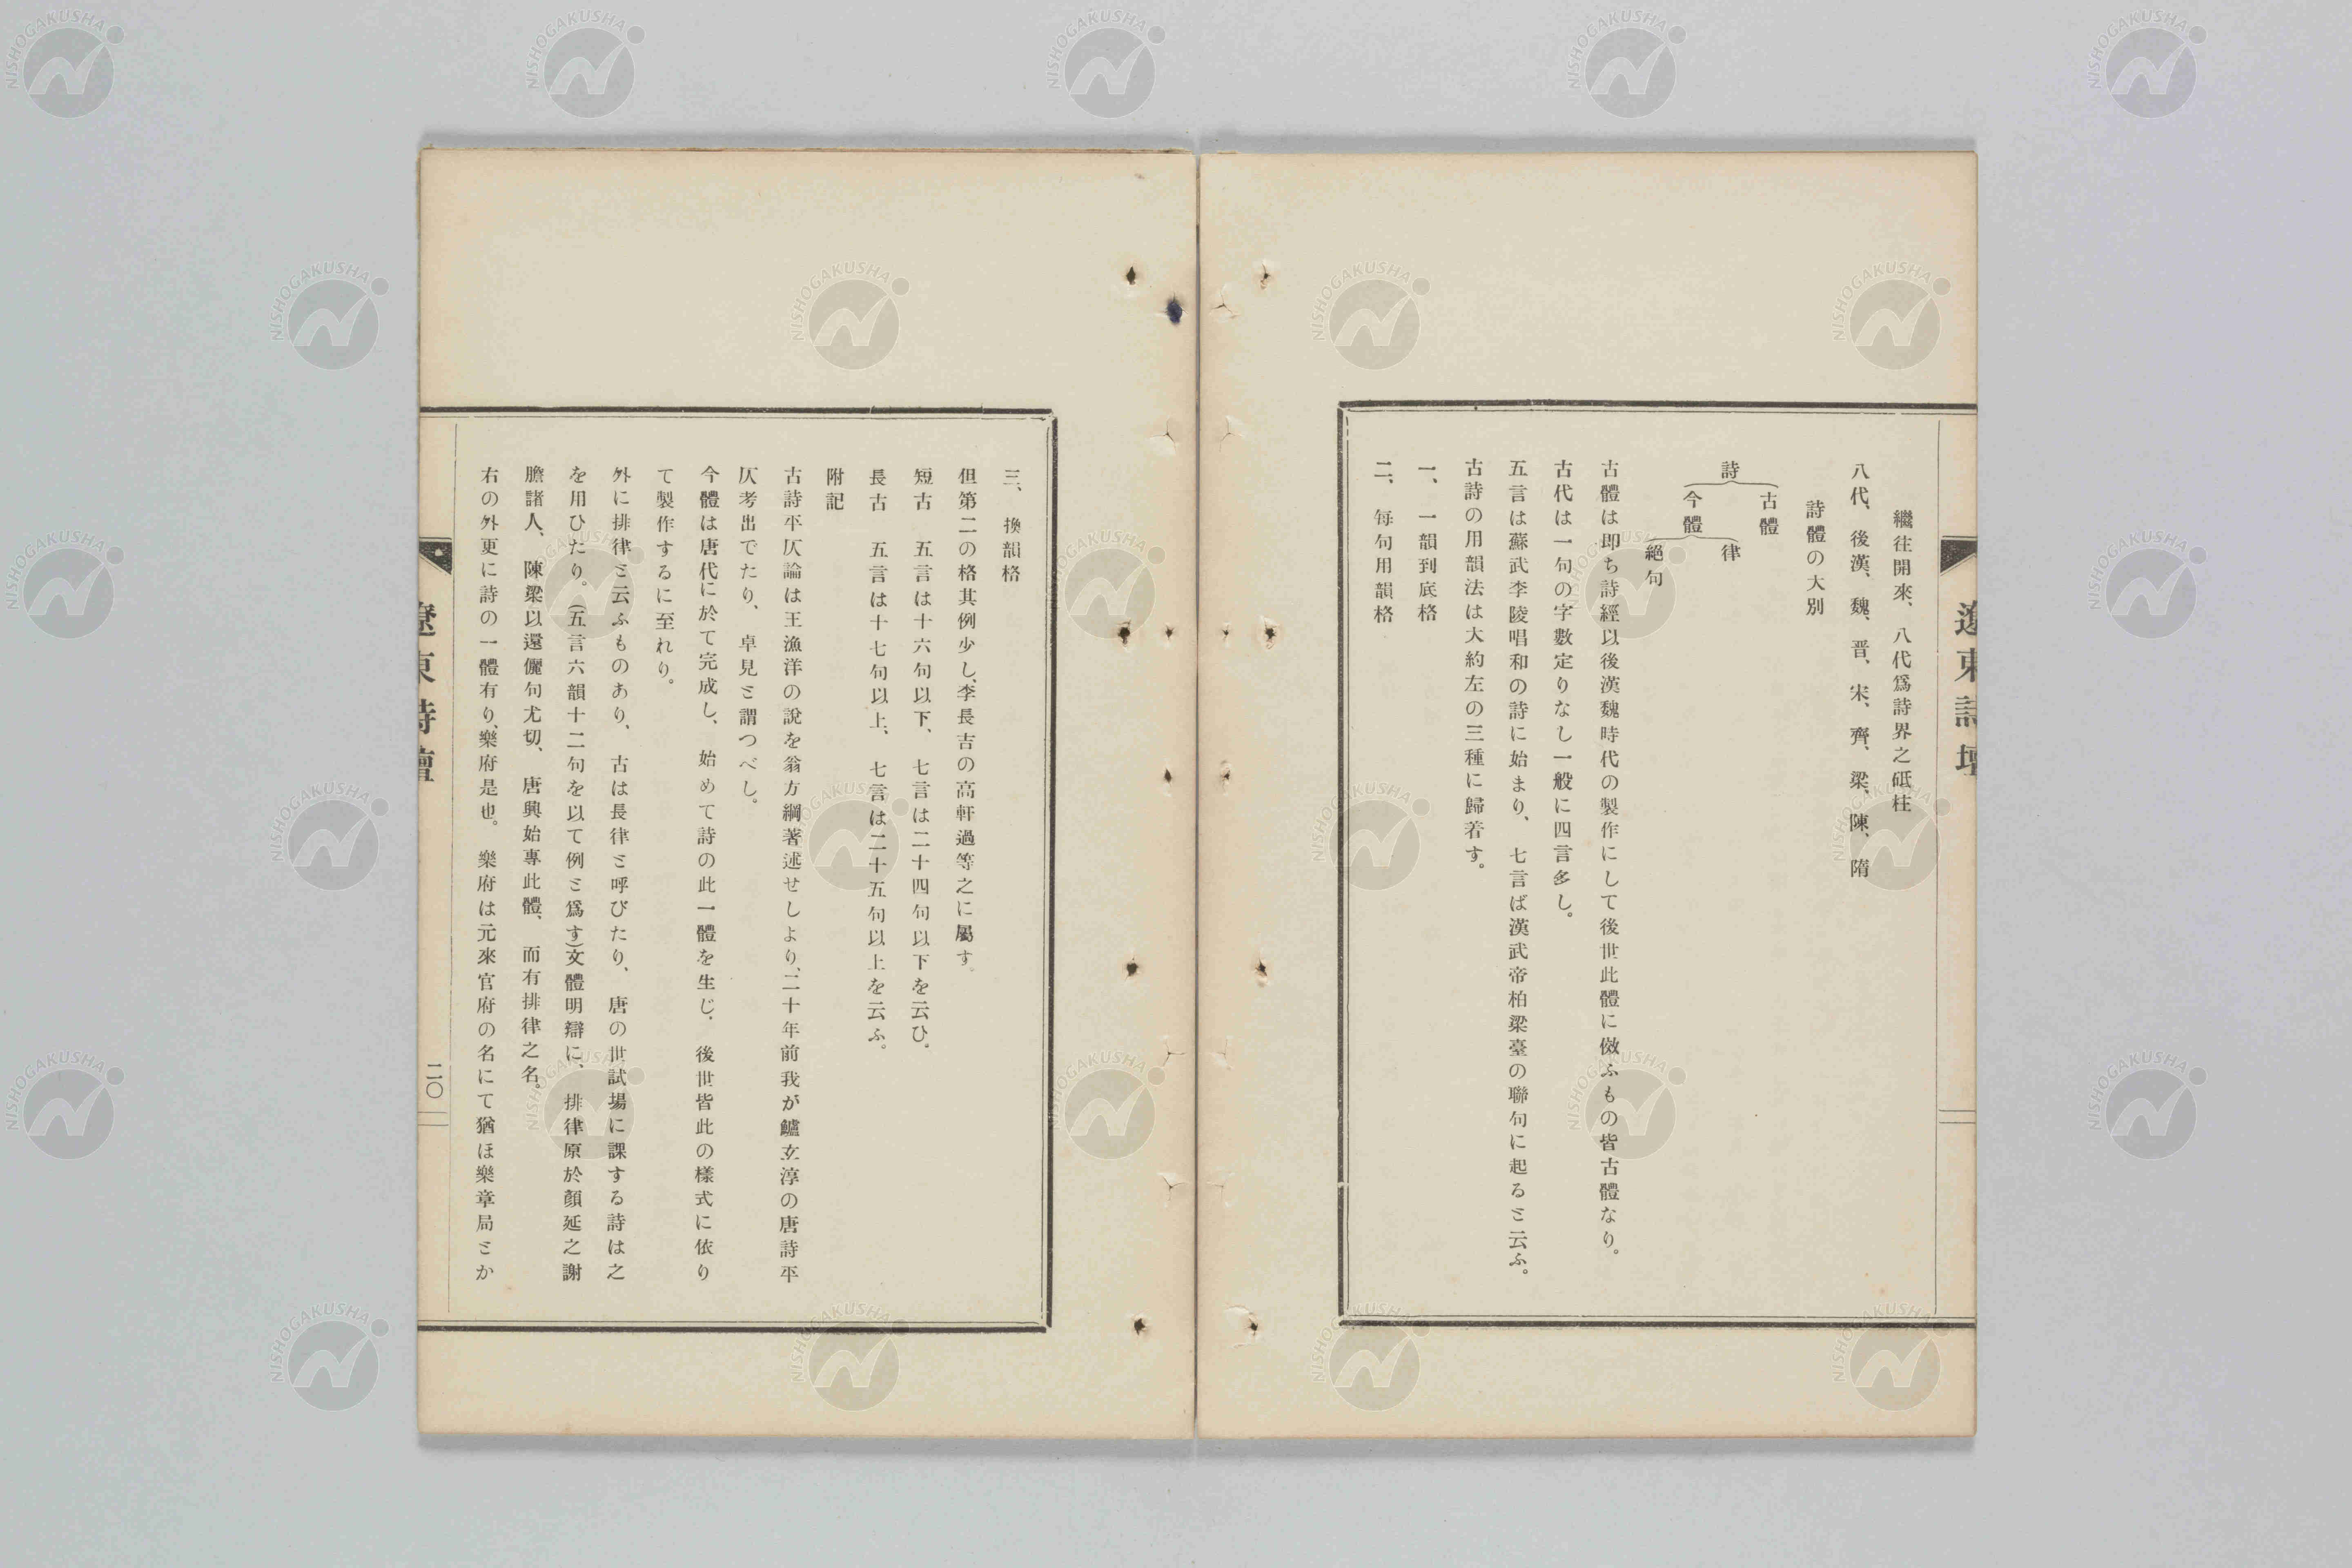 遼東詩壇
繼往開來、八代爲詩界之砥柱
八代、後漢、魏、晋、宋、齊、梁、陳、隋
詩體の大別
詩
古體
今體
律
絕句
古體は即ち詩經以後漢魏時代の製作にして後世此體に傚ふもの皆古體なり。
古代は一句の字數定りなし一般に四言多し。
五言は蘇武李陵唱和の詩に始まり、七言ば漢武帝柏梁臺の聯句に起ると云ふ。
古詩の用韻法は大約左の三種に歸着す。
一、一韻到底格
二、每句用韻格
三、換韻格
但第二の格其例少し、李長吉の高軒過等之に屬す。
短古　五言は十六句以下、七言は二十四句以下を云ひ。
長古　五言は十七句以上、七言は二十五句以上を云ふ。
附記
古詩平仄論は王漁洋の說を翁方綱著述せしより、二十年前我が鱸玄淳の唐詩平
仄考出でたり、卓見と謂つべし。
今體は唐代に於て完成し、始めて詩の此一體を生じ、後世皆此の樣式に依り
て製作するに至れり。
外に排律と云ふものあり、古は長律と呼びたり、唐の世試場に課する詩は之
を用ひたり。(五言六韻十二句を以て例と爲す)文體明辯に、排律原於顏延之謝
膽諸人、陳梁以還儷句尤切、唐興始專此體、而有排律之名。
右の外更に詩の一體有り、樂府是也。樂府は元來官府の名にて猶ほ樂章局とか
遼東詩壇
二〇
NISHOGAKUSHA